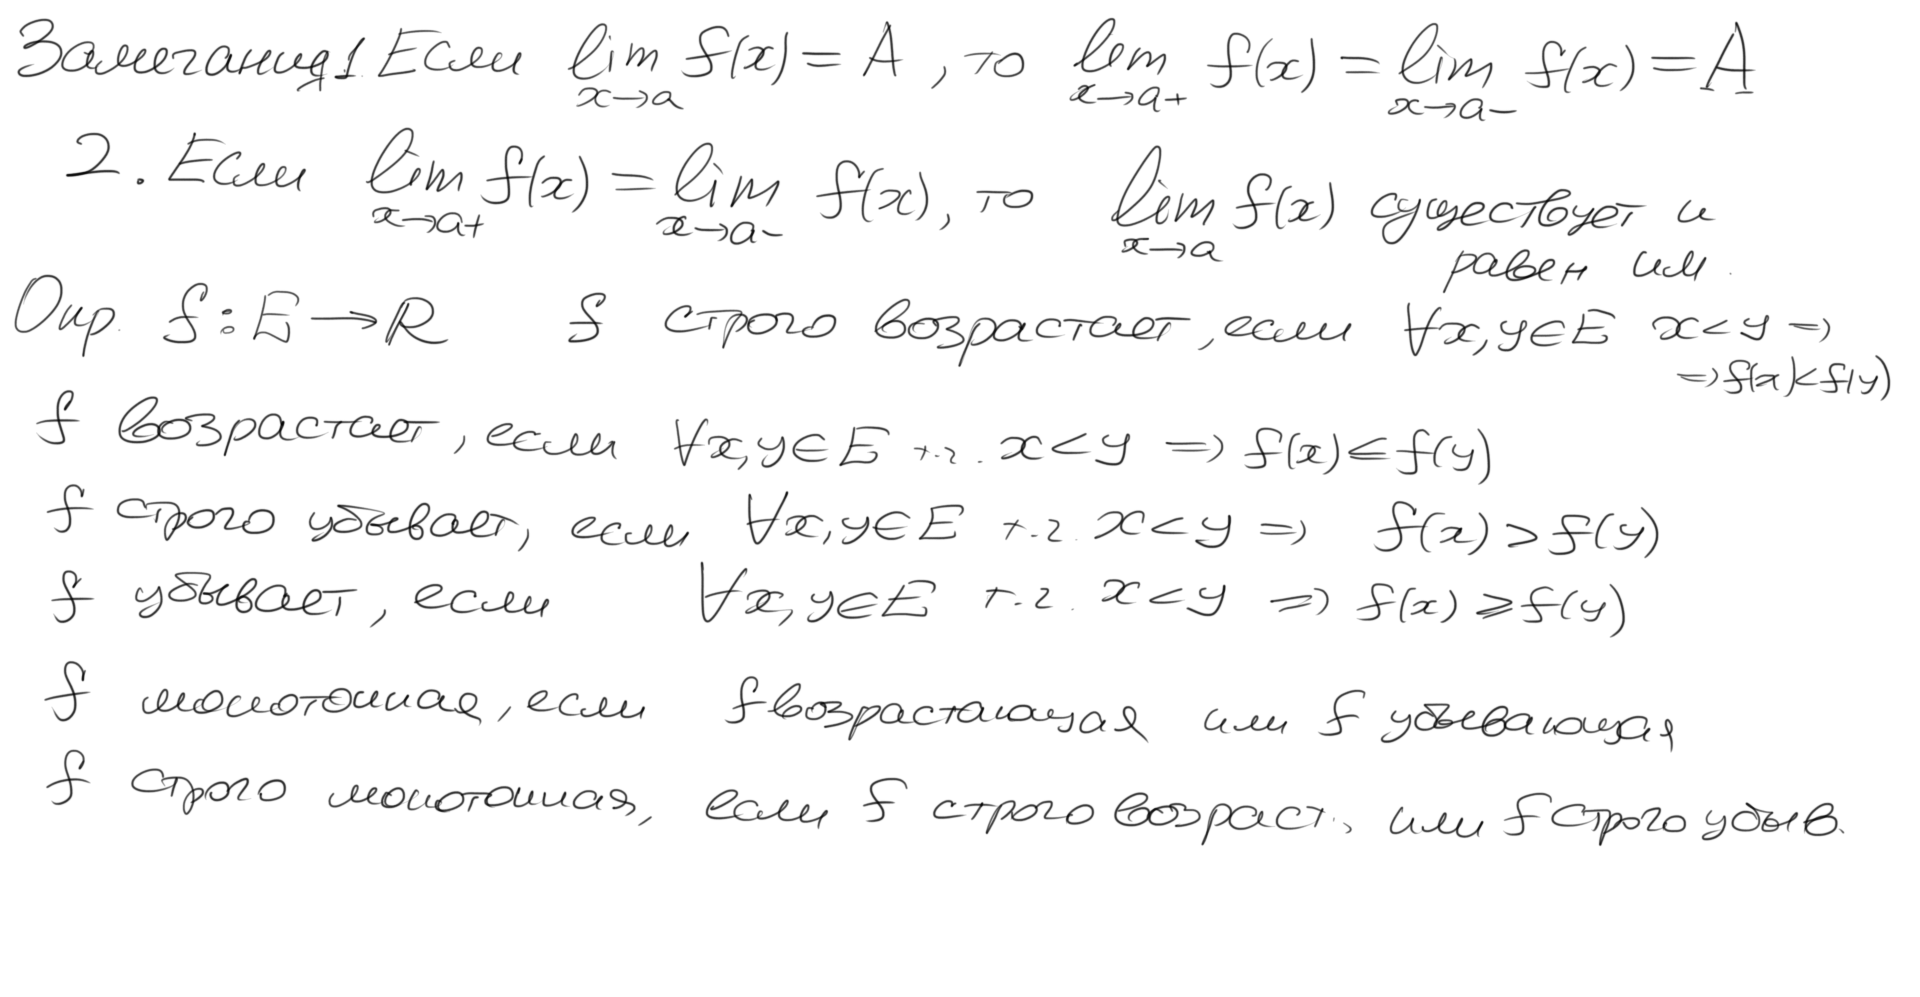 Замечания 1. Если lim x→a f(x) = A, то lim x→a+ f(x) = lim x→a− f(x) = A
2. Если lim x→a+ f(x) = lim x→a− f(x), то lim x→a f(x) существует и
равен им.
Опр. f: E → R f строго возрастает, если ∀x,y∈E x<y ⇒
⇒ f(x)<f(y)
f возрастает, если ∀x,y∈E т.ч. x<y ⇒ f(x)≤f(y)
f строго убывает, если ∀x,y∈E т.ч. x<y ⇒ f(x)>f(y)
f убывает, если ∀x,y∈E т.ч. x<y ⇒ f(x)≥f(y)
f монотонная, если f возрастающая или f убывающая
f строго монотонная, если f строго возраст., или f строго убыв.